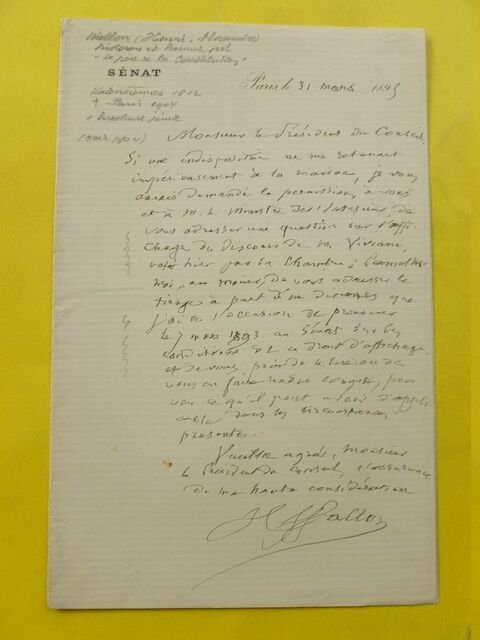 Wallon (Henri, Alexandre)
historien et homme pol.
"le père de la Constitution"
SÉNAT
Paris le 31 mars 1895
Valenciennes 1812
† Paris 1904
Monsieur le Président du Conseil,
Si une indisposition ne me retenait
impérieusement à la maison, je vous
aurais demandé la permission, à vous
et à M. le Ministre de l'Intérieur, de
vous adresser une question sur l'affi-
chage du discours de M. Viviani,
voté hier par la Chambre;
moi, au moins, de vous adresser le
tirage à part d'un discours que
j'ai eu l'occasion de prononcer
le 7 mars 1893 au Sénat sur les
conditions et le droit d'affichage
et de vous prier de le lire ou de
vous en faire rendre compte, pour
voir ce qu'il peut avoir d'appli-
cable dans les circonstances
présentes.
Veuillez agréer, Monsieur
le Président du Conseil, l'assurance
de ma haute considération
H Wallon